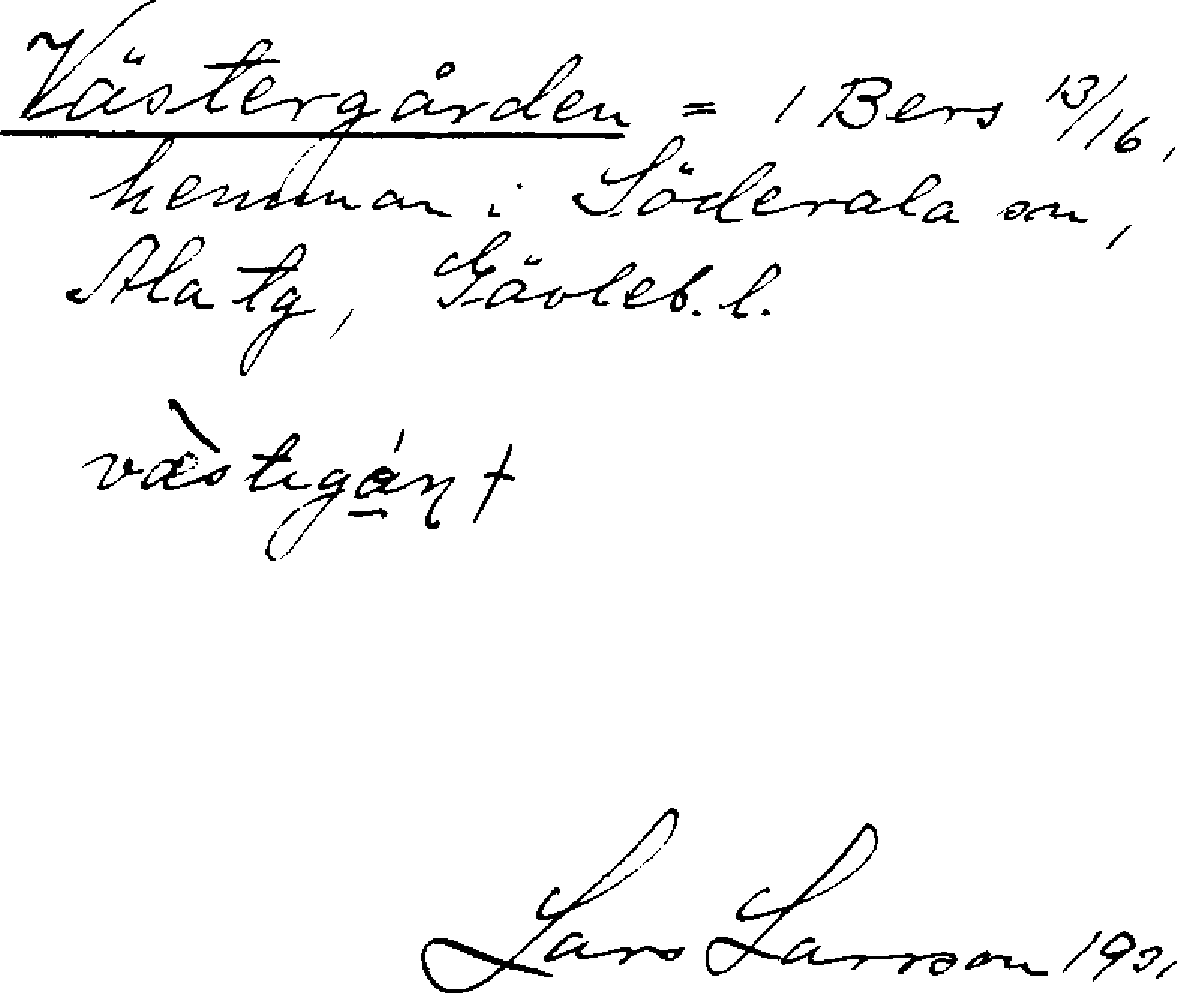 Västergården = 1 Bers 13/16,
hemman i Söderala sn,
Ala tg, Gävleb. l.
Lars Larsson 1931